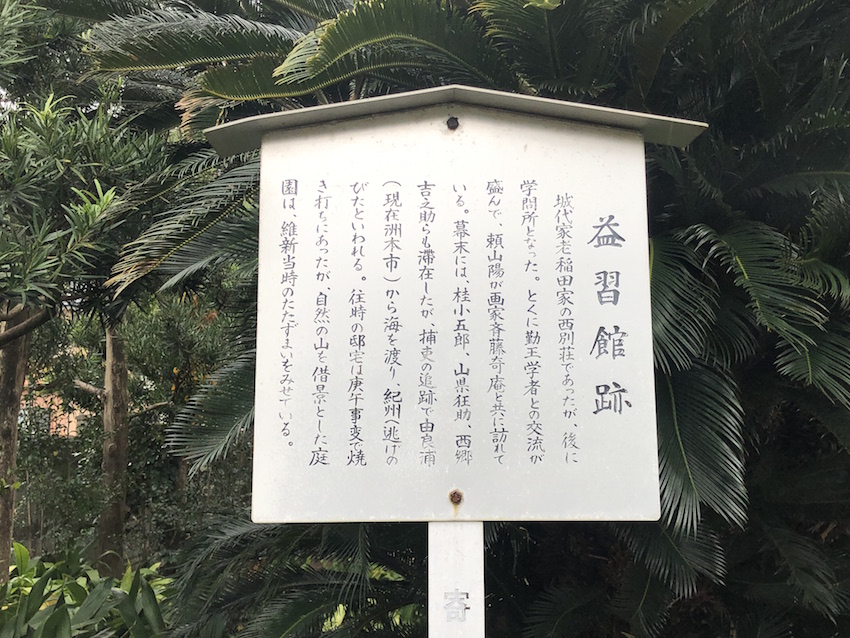 益習館跡
城代家老稲田家の西別荘であったが、後に
学問所となった。とくに勤王学者との交流が
盛んで、頼山陽が画家斉藤奇庵と共に訪れて
いる。幕末には、桂小五郎、山県狂助、西郷
吉之助らも滞在したが、捕吏の追跡で由良浦
(現在洲本市)から海を渡り、紀州へ逃げの
びたといわれる。往時の邸宅は庚午事変で焼
き打ちにあったが、自然の山を借景とした庭
園は、維新当時のたたずまいをみせている。
寄